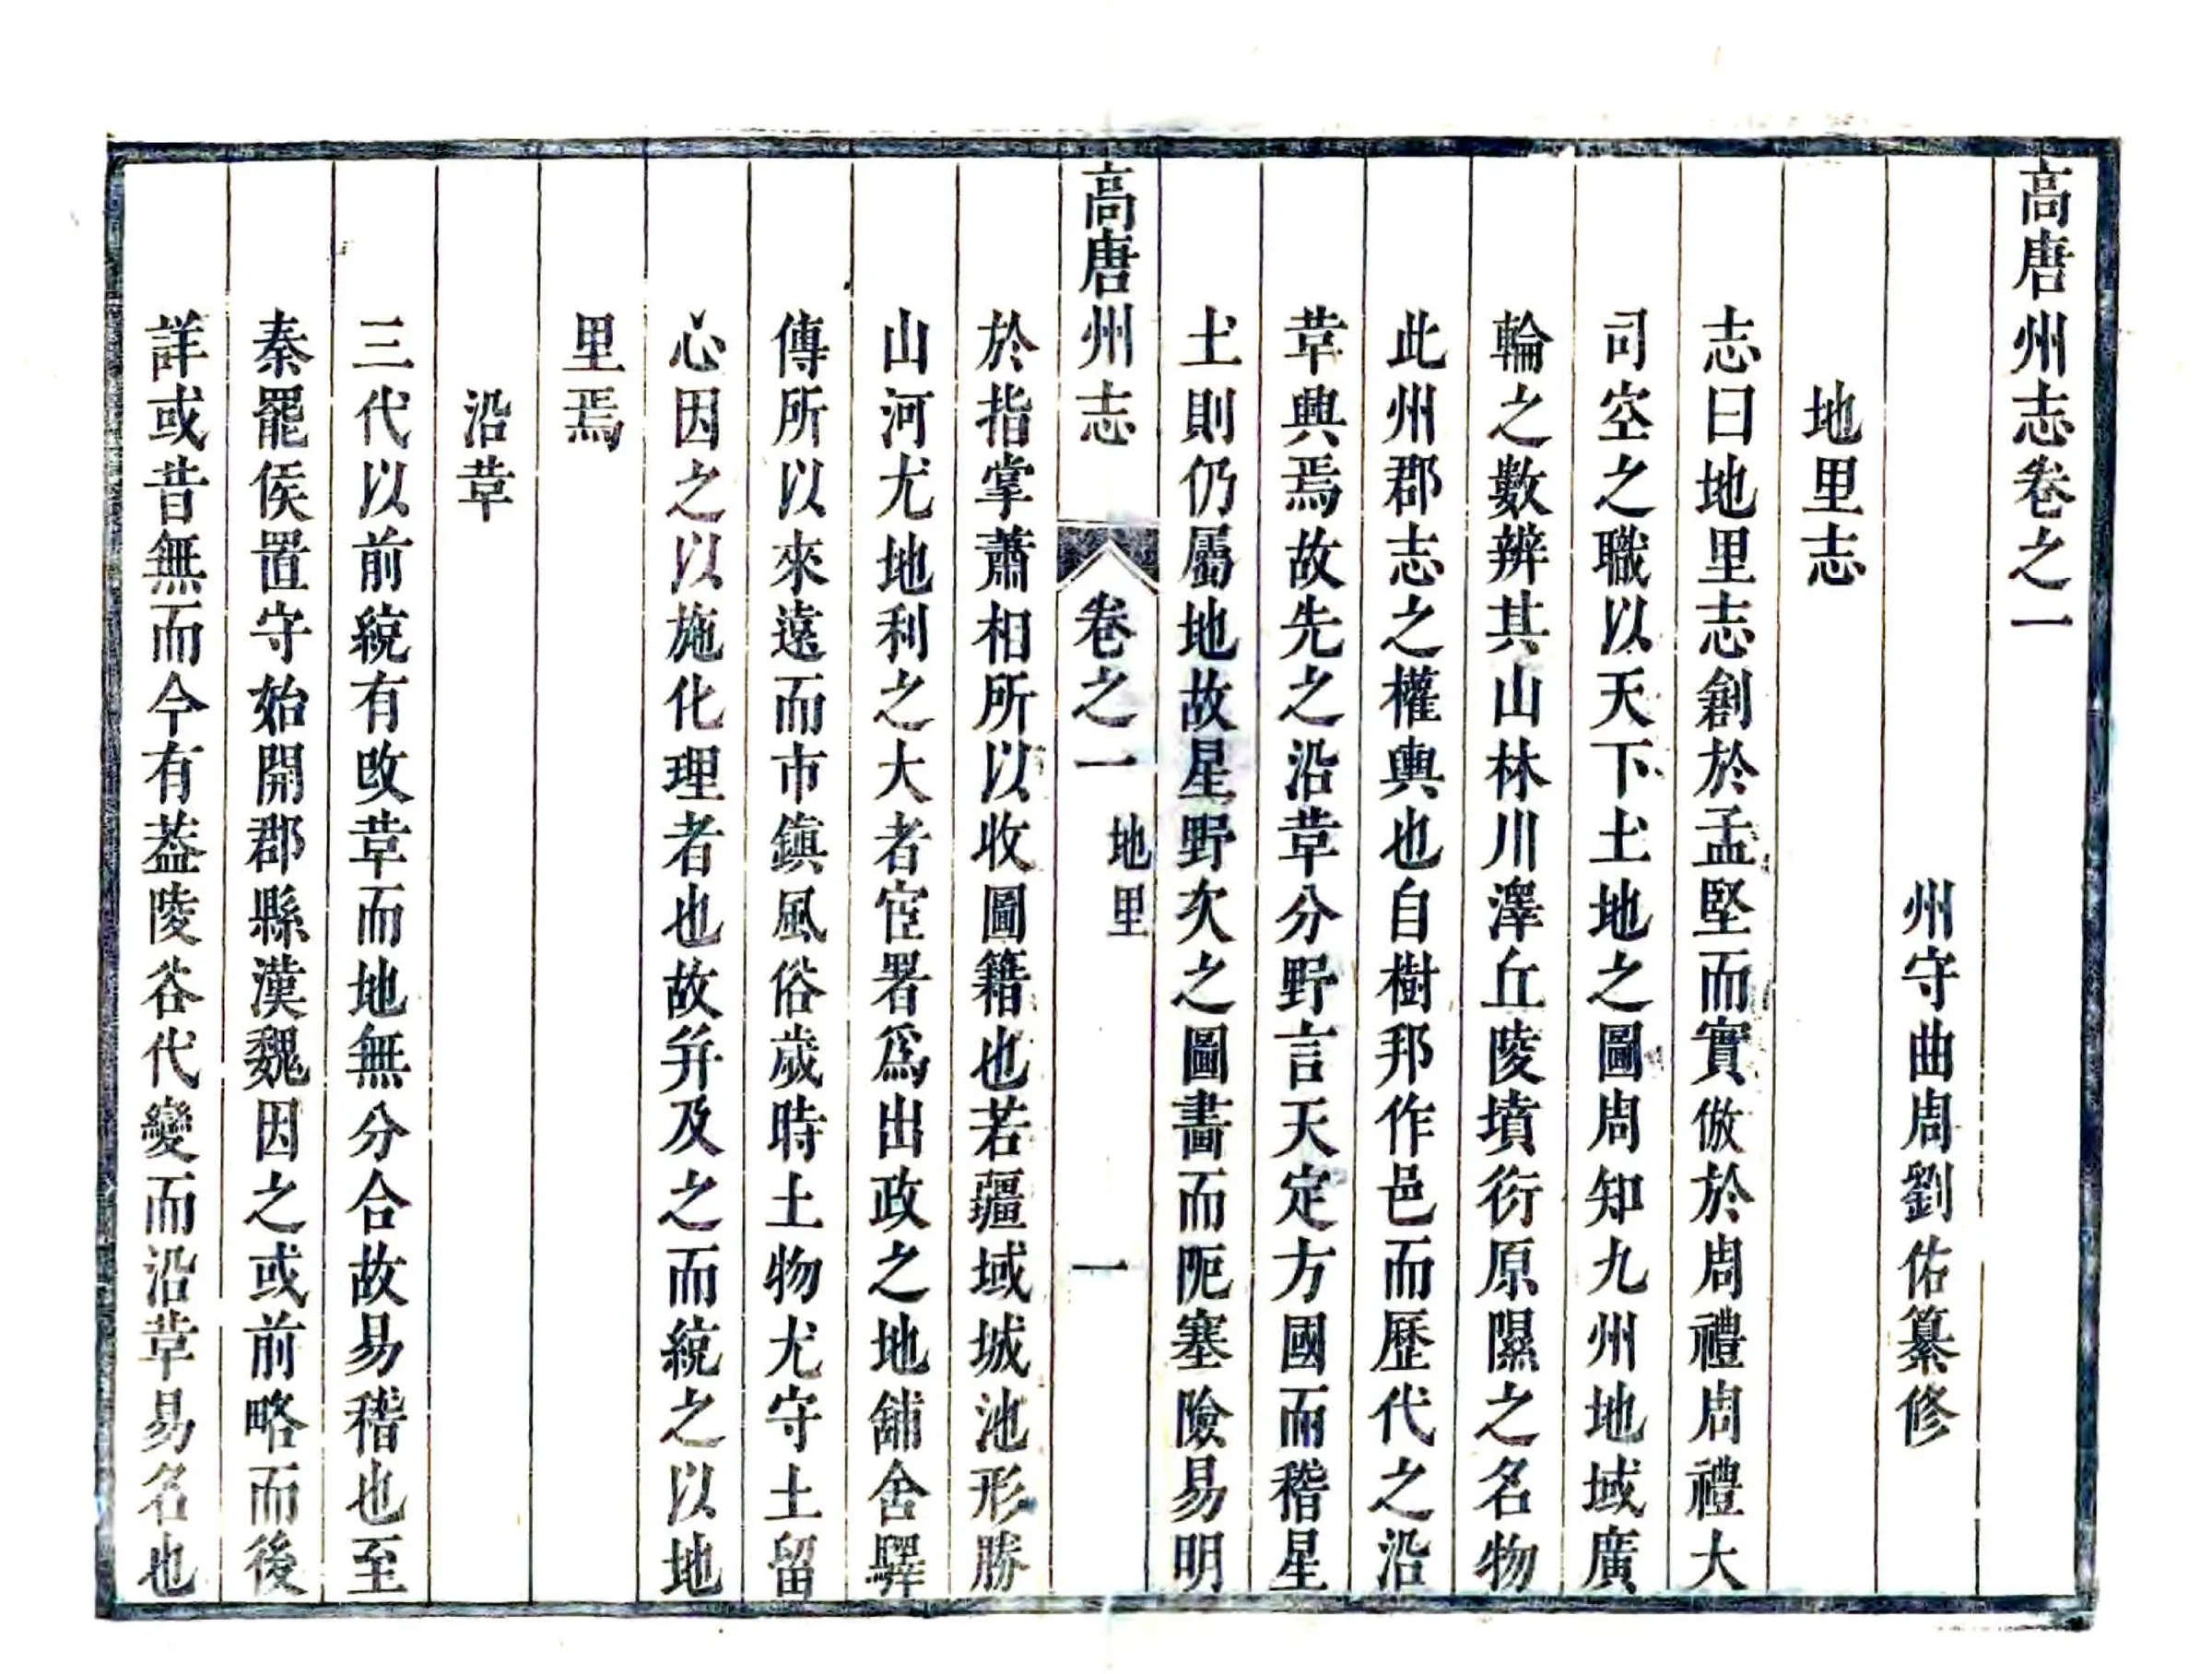 高唐州志卷之一
州守曲周劉佑纂修
地里志
志曰地里志創於孟堅而實倣於周禮周禮大
司空之職以天下土地之圖周知九州地域廣
輪之數辨其山林川澤丘陵墳衍原隰之名物
此州郡志之權輿也自樹邦作邑而歷代之沿
革興焉故先之沿革分野言天定方國而稽星
土則仍屬地故星野次之圖畫而阨塞險易明
高唐州志 卷之一 地里 一
於指掌蕭相所以收圖籍也若疆域城池形勝
山河尤地利之大者宦署爲出政之地舖舍驛
傳所以來遠而市鎮風俗歲時土物尤守土留
心因之以施化理者也故并及之而統之以地
里焉
沿革
三代以前統有改革而地無分合故易稽也至
秦罷侯置守始開郡縣漢魏因之或前略而後
詳或昔無而今有葢陵谷代變而沿革易名也